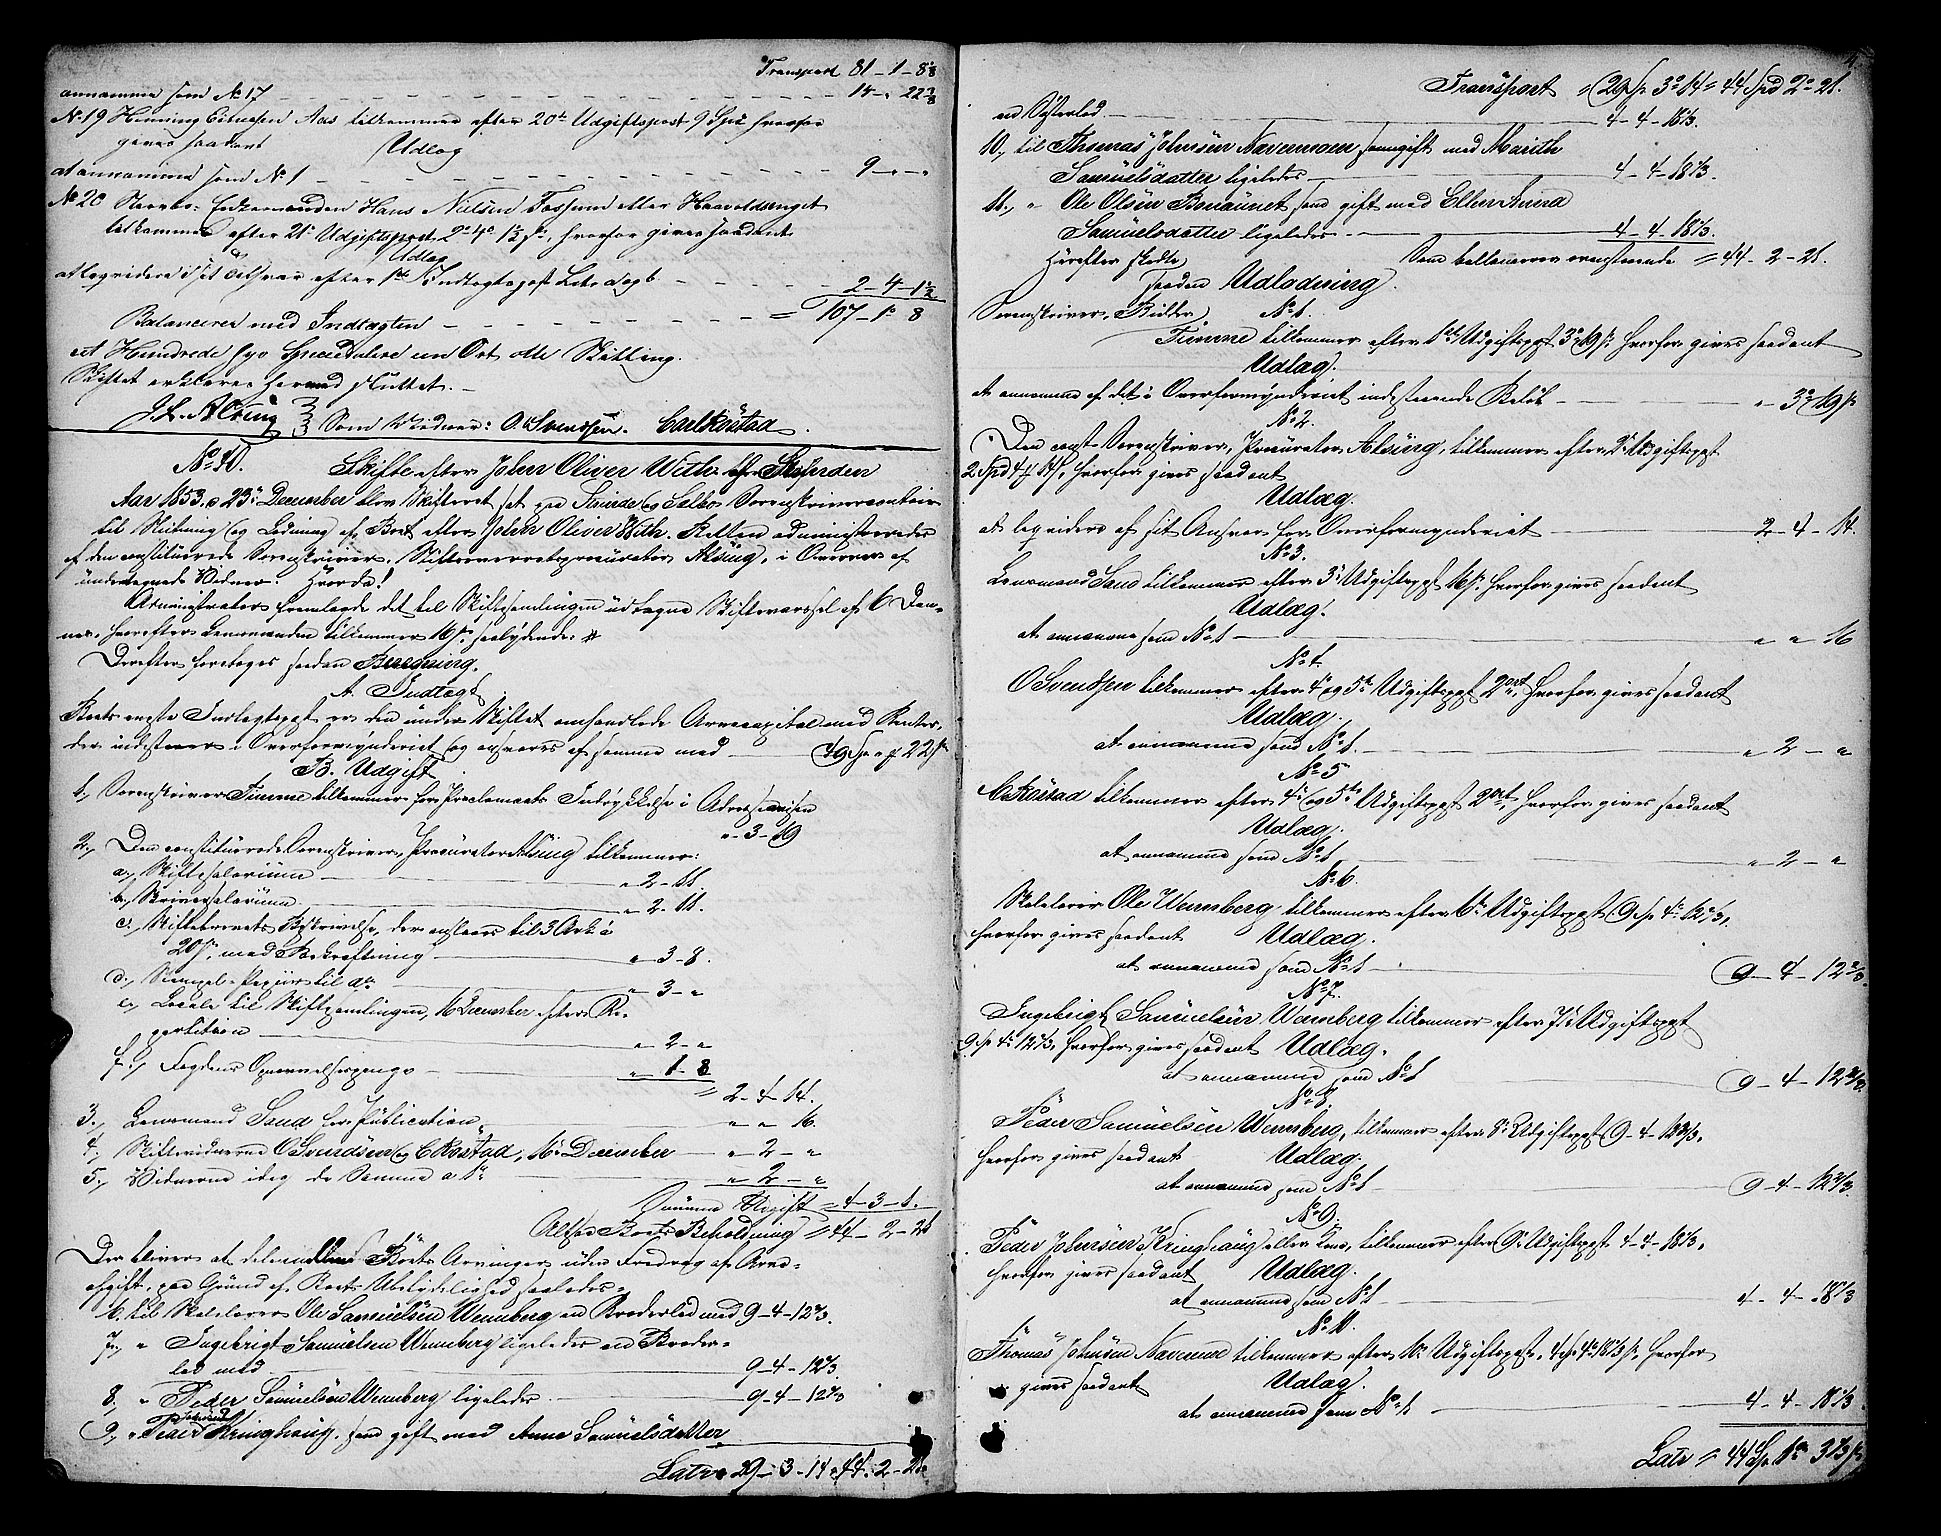 Transport 81-1-8⅛
annamme som No 17 14 " 22⅞
No 19 Henning Aas tilkommer efter 20de Udgiftspost 9 Spd hvorfor
gives saadant Udlæg
at annamme som No 1 9-"-"
No 20 Enkemanden Hans Nielsen Fossum eller Haavoldsenget
tilkommer efter 21de Udgiftspost 2-4-1½ s, hvorfor gives saadant
Udlæg
at leqvidere i sit Ansvar efter 1ste Indtægtspost Litr a og b 2-4-1½
Balancerer med Indtægten = 107-1-8
et Hundrede syv Speciedalere en Ort otte Skilling.
Skiftet erklæres hermed sluttet.
J. L. Alsing Som Vidner: O. Svendsen. Carl Røstad.
No 40. Skifte efter John Oliver With
Aar 1853 d 23de December blev Skifteret sat paa Strinde og Selbo Sorenskrivercontoir
til Slutning og Lodning af Boet efter John Oliver With. Retten administreredes
af den constituerede Sorenskriver, Stiftsoverretsprocurator Alsing, i Overvær af
undertegnede Vidner. Hvorda!
Administrator fremlagde det til Skiftesamlingen udtagne Skiftevarsel af 6 Den-
nes, hvorefter Lensmanden tilkommer 16 s. saalydende: #
Derefter foretoges saadan Beregning.
A. Indtægt
Boets eneste Indtægtspost er den under Skiftet omhandlede Arvecapital med Renter,
der indestaaer i Overformynderiet og ansvares af samme med 49 Sp " # 22 s
B. Udgift
1., Sorenskriver Finne tilkommer for Proclamaets Indrykkelse i Adresseavisen
" - 3 - 19
2., Den constituerede Sorenskriver, Procurator Alsing tilkommer:
a., Skiftesalarium " 2-11.
b., Skriversalarium " 2-11.
c., Skiftebrevets Beskrivelse, der ansaaes til 3 Ark à
20 s, med Bekræftning " 3-8.
d., Stempel-Papiir til do " 3-"
e., Locale til Skiftesamlingen, 16 December efter Re-
partition " 2-"
f., Fogdens Opnævnelsespenge " 1-8
= 2-4-14.
3., Lensmand Sand for Publication " " 16.
4., Skiftevidnerne O Svendsen og C Røstad, 16de December " 2-"
5., Vidnerne idag de Samme a do " 2-"
Summa Udgift = 4-3-1.
Altsaa Boets Beholdning = 44-2-21
Der bliver at dele mellem Boets Arvinger uden Fradrag af Arve-
afgift, paa Grund af Boets Ubetydelighed saaledes:
6. til Skolelærer Ole Samuelsen Wennberg en Broderlod med 9-4-12⅔.
7., " Ingebrigt Samuelsen Wennberg ligeledes en Broder-
lod med 9-4-12⅔
8., " Peder Samuelsen Wennberg ligeledes 9-4-12⅔
9., " Peder Johnsen Kringhaug, som gift med Anne Samuelsdatter
Latr. 29-3-14 = 44-2-21
Transport = 29 Sp 3 o 14 = 44 Spd 2 o 21.
en Søsterlod 4-4-18⅓.
10., til Thomas Johnsen Nævermoen som gift med Marith
Samuelsdatter ligeledes 4-4-18⅓.
11., " Ole Olsen Bonaunet som gift med Ellen Anna
Samuelsdatter ligeledes 4-4-18⅓.
Som ballancerer ovenstaaende = 44-2-21.
Herefter skedte
saadan Udlodning.
No 1.
Sorenskriver, Ridder
Finne tilkommer efter 1ste Udgiftspost 3 o 19 s hvorfor gives saadant
Udlæg.
at annamme af det i Overformynderiet indestaaende Beløb " 3 o 19 s
No 2.
Den const. Sorenskriver, Procurator Alsing, tilkommer efter 2den Udgiftspost
2 Spd 4 # 14 s, hvorfor gives saadant
Udlæg.
at leqvidere af sit Ansvar for Overformynderiet 2-4-14.
No 3.
Lensmand Sand tilkommer efter 3de Udgiftspost 16 s. hvorfor gives saadant
Udlæg.
at annamme som No 1 " " 16
No 4.
O Svendsen tilkommer efter 4de og 5te Udgiftspost 2 ort, hvorfor gives saadant
Udlæg.
at annamme som No 1. " 2-"
No 5
C. Røstad tilkommer efter 4de og 5te Udgiftspost 2 ort, hvorfor gives saadant
Udlæg.
at annamme som No 1 " 2-"
No 6.
Skolelærer Ole Wennberg tilkommer efter 6te Udgiftspost 9 Sp 4 o 12⅔,
hvorfor gives saadant Udlæg.
at annamme som No 1 9-4-12⅔.
No 7.
Ingebrigt Samuelsen Wennberg tilkommer efter 7de Udgiftspost
9 Sp 4 o 12⅔, hvorfor gives saadant Udlæg.
at annamme som No 1 9-4-12⅔.
No 8.
Peder Samuelsen Wennberg, tilkommer efter 8de Udgiftspost 9-4-12⅔,
hvorfor gives saadant Udlæg.
at annamme som No 1 9-4-12⅔.
No 9.
Peder Johnsen Kringhaug eller Kone, tilkommer efter 9de Udgiftspost 4-4-18⅓,
hvorfor gives saadant Udlæg.
at annamme som No 1 4-4-18⅓
No 10.
Thomas Johnsen Nævermoe tilkommer efter 10de Udgiftspost, 4 Sp 4 o 18⅓ s, hvorfor
gives saadant Udlæg.
at annamme som No 1 4-4-18⅓.
Latr = 44 Sp 1 o 3⅓ s